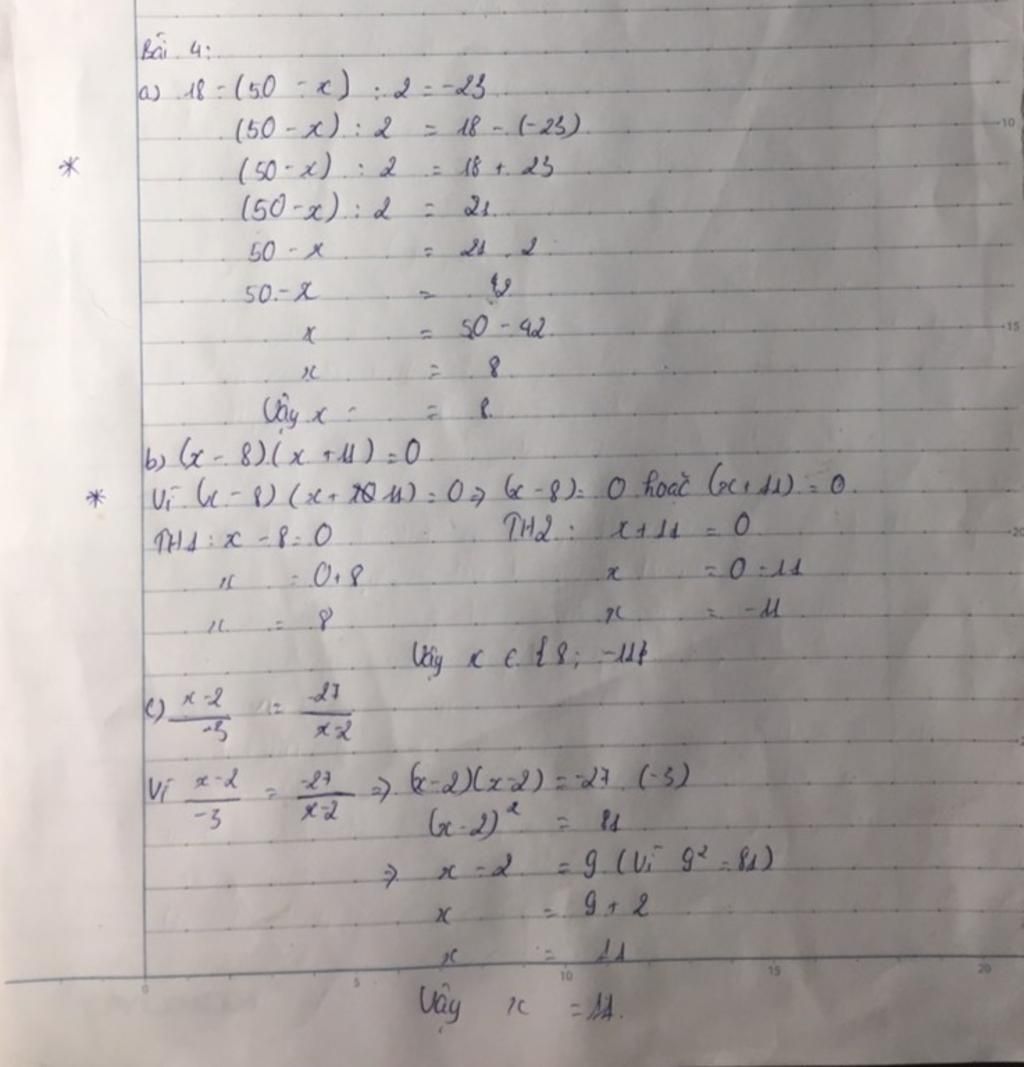 Bài 4:
a) 18 - (50 - x) : 2 = -23
(50 - x) : 2 = 18 - (-23)
* (50 - x) : 2 = 18 + 23
(50 - x) : 2 = 21
50 - x = 21 . 2
50 - x =
x = 50 - 42
x = 8
Vậy x = = 8.
b) (x - 8) (x + 11) = 0
* Vì (x - 8) (x + 11) = 0 => (x - 8) = 0 hoặc (x + 11) = 0
TH1: x - 8 = 0 TH2: x + 11 = 0
x = 0 + 8 x = 0 - 11
x = 8 x = -11
Vậy x ∈ {8; -11}
c) x-2/-3 = -27/x-2
Vì x-2/-3 = -27/x-2 => (x-2)(x-2) = -27 . (-3)
(x-2)² = 81
=> x - 2 = 9 (Vì 9² = 81)
x = 9 + 2
x = 11
Vậy x = 11.
10
15
20
0 5 10 15 20